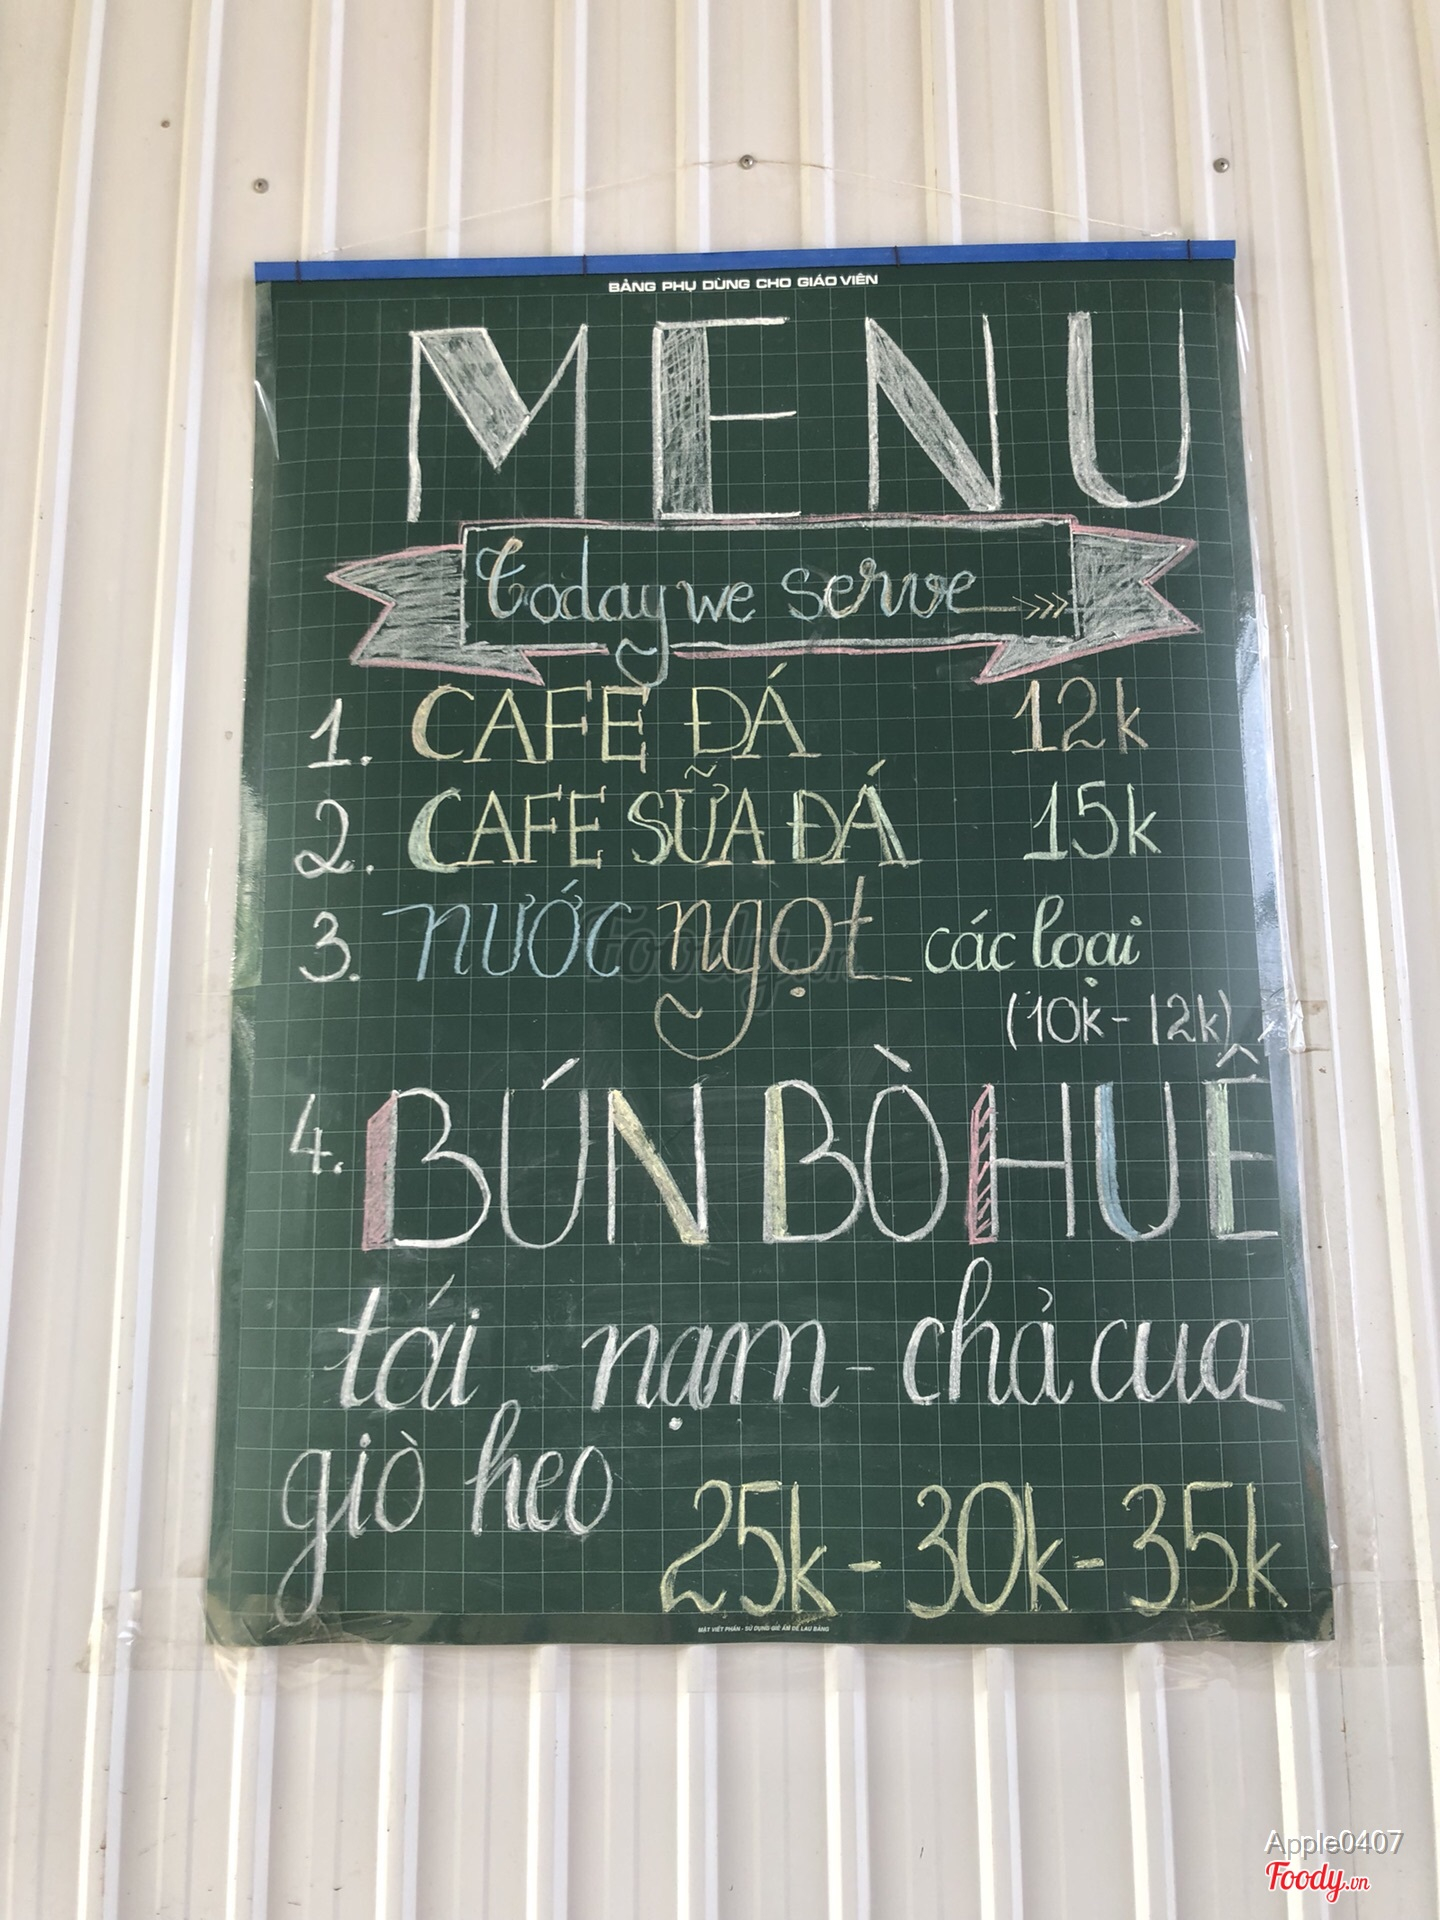 BẢNG PHỤ DÙNG CHO GIÁO VIÊN
MENU
Today we serve
1. CAFE ĐÁ 12k
2. CAFE SỮA ĐÁ 15k
3. nước ngọt các loại
(10k - 12k)
4. BÚN BÒ HUẾ
tái - nạm - chả cua
giò heo
25k - 30k - 35k
MẶT VIẾT PHẤN - SỬ DỤNG GIẺ ẨM ĐỂ LAU BẢNG
Foody.vn
Apple0407
Foody.vn